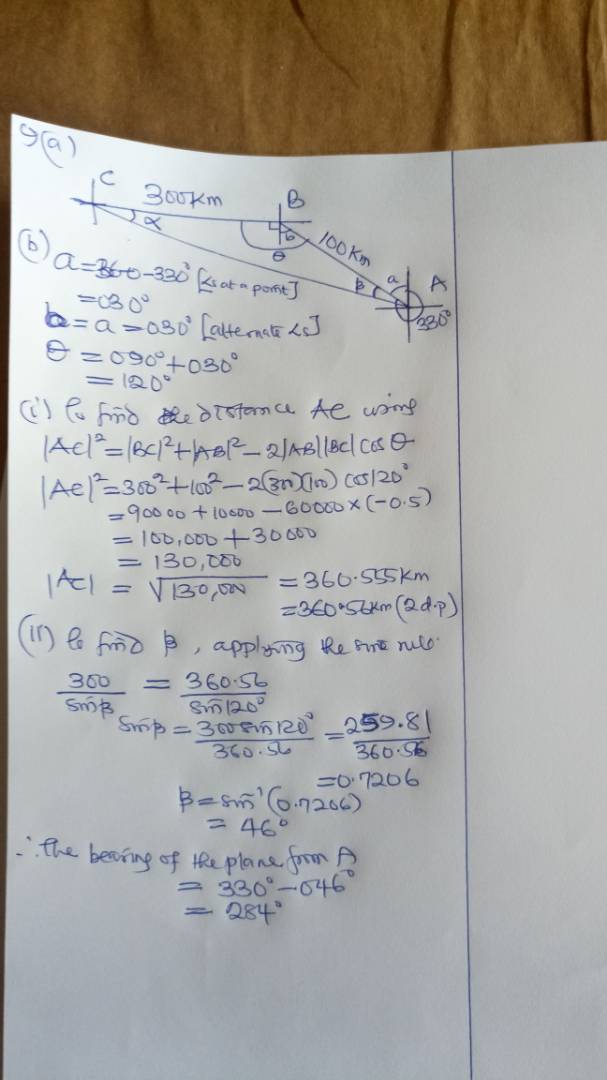 9(a)
C 300Km B
α b 100Km
θ β a A
330°
(b) a = 360 - 330° [<s at a point]
= 030°
b = a = 030° [alternate <s]
θ = 090° + 030°
= 120°
(i) To find the distance AC using
|AC|² = |BC|² + |AB|² - 2|AB||BC| cos θ
|AC|² = 300² + 100² - 2(300)(100) cos 120°
= 90000 + 10000 - 60000 × (-0.5)
= 100,000 + 30000
= 130,000
|AC| = √130,000 = 360.555km
= 360.56km (2d.p)
(ii) To find β, applying the sine rule.
300/sinβ = 360.56/sin120°
sinβ = 300sin120°/360.56 = 259.81/360.56
= 0.7206
β = sin⁻¹(0.7206)
= 46°
∴ The bearing of the plane from A
= 330° - 046°
= 284°